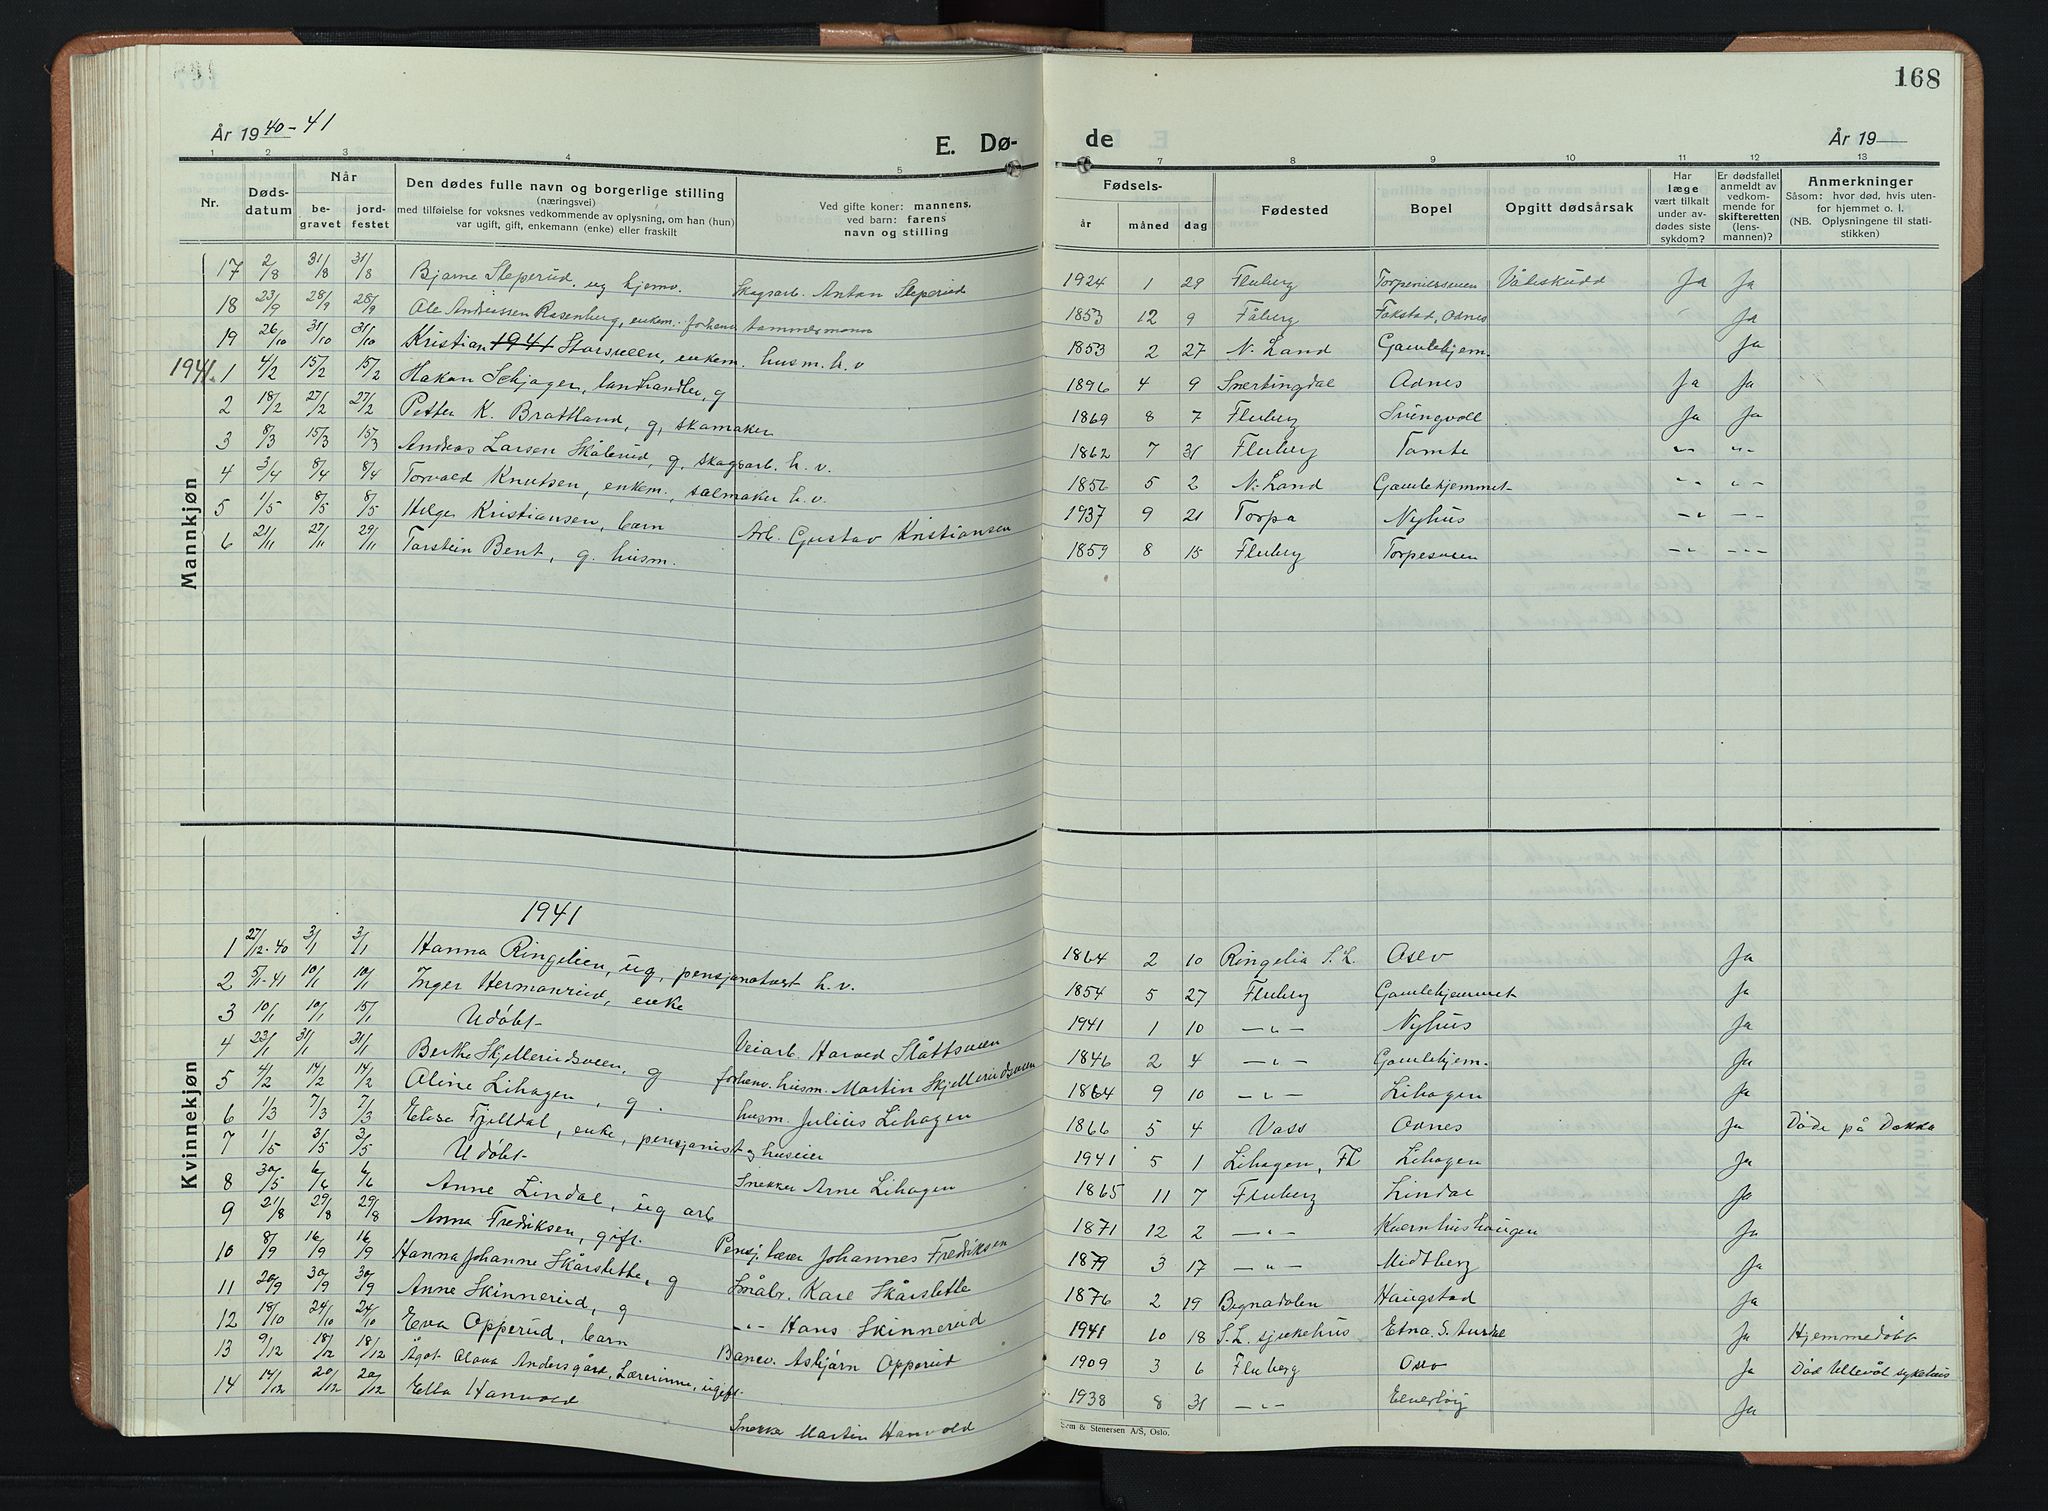 168
År 1940-41
E. Dø-
de
År 19
1 2 3 4 5 7 8 9 10 11 12 13
Nr.
Dødsdatum
Når
begravet
jordfestet
Den dødes fulle navn og borgerlige stilling
(næringsvei)
med tilføielse for voksnes vedkommende av oplysning, om han (hun)
var ugift, gift, enkemann (enke) eller fraskilt
Ved gifte koner: mannens,
ved barn: farens
navn og stilling
Fødsels-
år måned dag
Fødested
Bopel
Opgitt dødsårsak
Har læge vært tilkalt under avdødes siste sykdom?
Er dødsfallet anmeldt av vedkommende for skifteretten (lensmannen)?
Anmerkninger
Såsom: hvor død, hvis utenfor hjemmet o. l.
(NB. Oplysningene til statistikken)
Mannkjøn
17 2/8 31/8 31/8 Bjarne Sleperud, ug hjemv. Skogsarb. Anton Sleperud 1924 1 29 Fluberg Vådeskudd Ja Ja
18 23/9 28/9 28/9 Ole Andreassen Rosenberg, enkem. forhenv. tømmermann 1853 12 9 Fåberg Fakstad, Odnes Ja
19 26/10 31/10 31/10 Kristian 1941 Storsveen, enkem. husm. h.v 1853 2 27 N. Land Gamlehjem. Ja
1941. 1 4/2 15/2 15/2 Håkon Schjager, landhandler, g 1896 4 9 Snertingdal Odnes Ja Ja
2 18/2 27/2 27/2 Petter K. Brattland, g, skomaker 1869 8 7 Fluberg Svingvoll Ja Ja
3 8/3 15/3 15/3 Andreas Larsen Skålerud, g, skogsarb. h. v. 1862 7 31 Fluberg Tomte -"- -"-
4 3/4 8/4 8/4 Torvald Knutsen, enkem., salmaker h.v. 1856 5 2 N. Land Gamlehjemmet -"- -"-
5 1/5 8/5 8/5 Helge Kristiansen, barn Arb. Gustav Kristiansen 1937 9 21 Torpa Nyhus -"- -"-
6 21/11 27/11 29/11 Torstein Bent, g. husm. 1859 8 15 Fluberg Torpesveen -"- -"-
Kvinnekjøn
1941
1 27/12-40 3/1 3/1 Hanna Ringelien, ug, pensjonatvert h.v. 1864 2 10 Ringelia S.L. Osev Ja
2 5/1-41 10/1 10/1 Inger Hermanrud, enke 1854 5 27 Fluberg Gamlehjemmet Ja
3 10/1 10/1 15/1 Udøbt Veiarb. Harved Slåttsveen 1941 1 10 -"- Nyhus Ja
4 23/1 31/1 31/1 Berthe Skjellerudsveen, g forhenv. husm. Martin Skjellerudsveen 1846 2 4 -"- Gamlehjem. Ja
5 4/2 14/2 14/2 Oline Lihagen, g. husm. Julius Lihagen 1864 9 10 -"- Lihagen Ja
6 1/3 7/3 7/3 Elise Fjelldal, enke, pensjonist og huseier 1866 5 4 Voss Odnes Ja Døde på Dokka
7 1/5 3/5 3/5 Udøbt Snekker Arne Lihagen 1941 5 1 Lihagen, Fl. Lihagen Ja
8 30/5 6/6 6/6 Anne Lindal, ug arb 1865 11 7 Fluberg Lindal Ja
9 21/8 29/8 29/8 Anna Frediksen, gift. Pensj. lærer Johannes Frediksen 1871 12 2 -"- Kvernhushaugen Ja
10 8/9 16/9 16/9 Hanna Johanne Skårslette, g Småbr. Karl Skårslette 1879 3 17 -"- Midtberg Ja
11 20/9 30/9 30/9 Anne Skinnerud, g -"- Hans Skinnerud 1876 2 19 Begnadalen Haugstad Ja
12 18/10 24/10 24/10 Eva Opperud, barn Banev. Asbjørn Opperud 1941 10 18 S.L. sjukehus Etna, S. Aurdal Ja Hjemmedøbt
13 9/12 18/12 18/12 Ågot Olava Andersgård, Lærerinne, ugift 1909 3 6 Fluberg Oslo Ja Død Ullevål sykehus
14 14/12 20/12 20/12 Ella Hanvold Snekker Martin Hanvold 1938 8 31 -"- Ja
Sem & Stenersen A/S, Oslo.